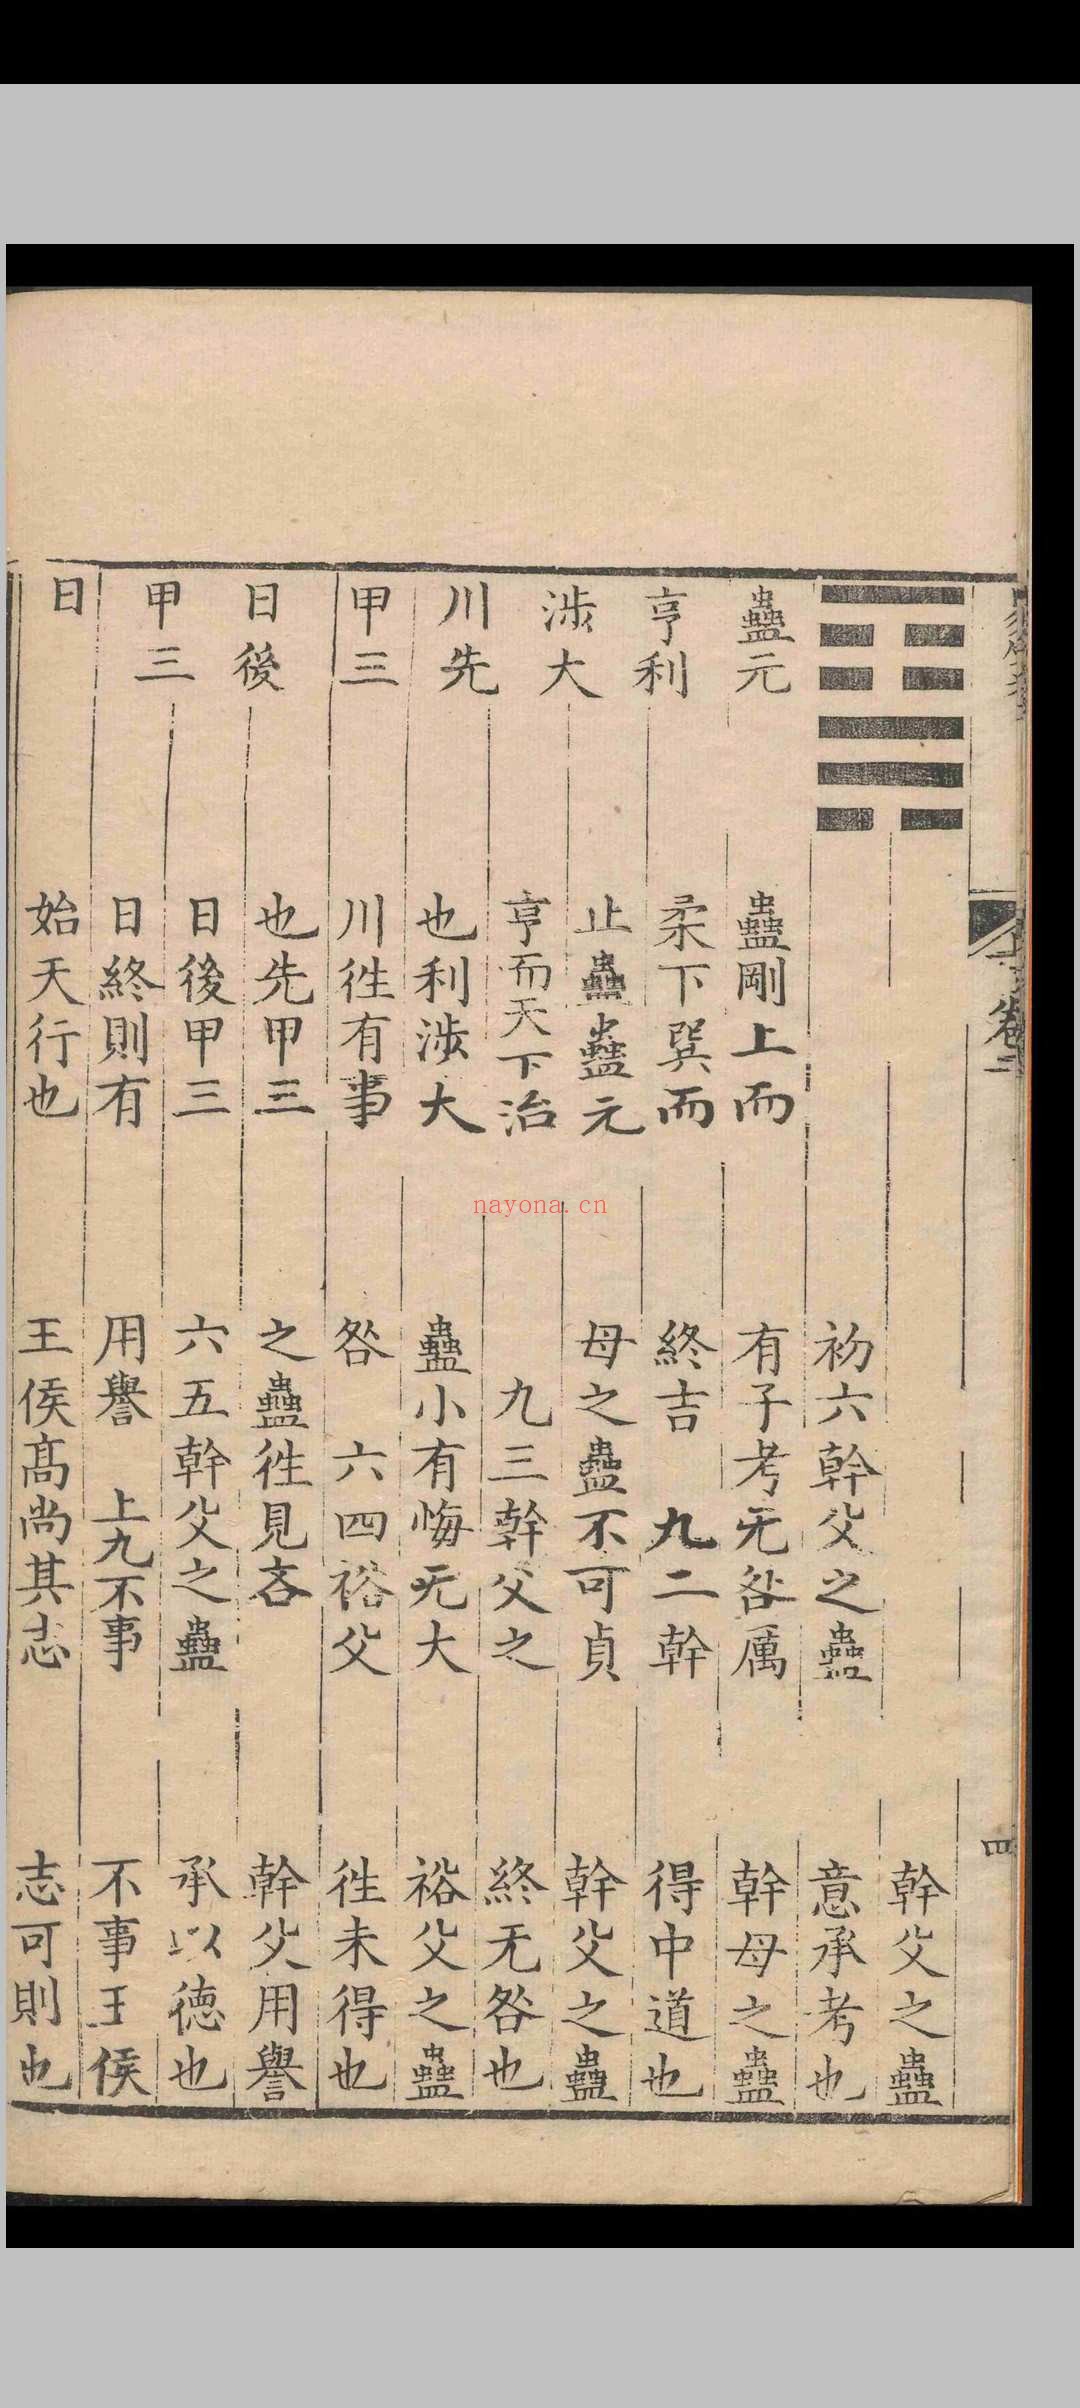 蠱元
亨利
涉大
川先
甲三
日後
甲三
日
蠱剛上而
柔下巽而
止蠱蠱元
亨而天下治
也利涉大
川徃有事
也先甲三
日後甲三
日終則有
始天行也
初六幹父之蠱
有子考无咎厲
終吉 九二幹
母之蠱不可貞
九三幹父之
蠱小有悔无大
咎 六四裕父
之蠱徃見吝
六五幹父之蠱
用譽 上九不事
王侯髙尚其志
幹父之蠱
意承考也
幹母之蠱
得中道也
幹父之蠱
終无咎也
裕父之蠱
徃未得也
幹父用譽
承以德也
不事王侯
志可則也
卷二
四
nayona.cn